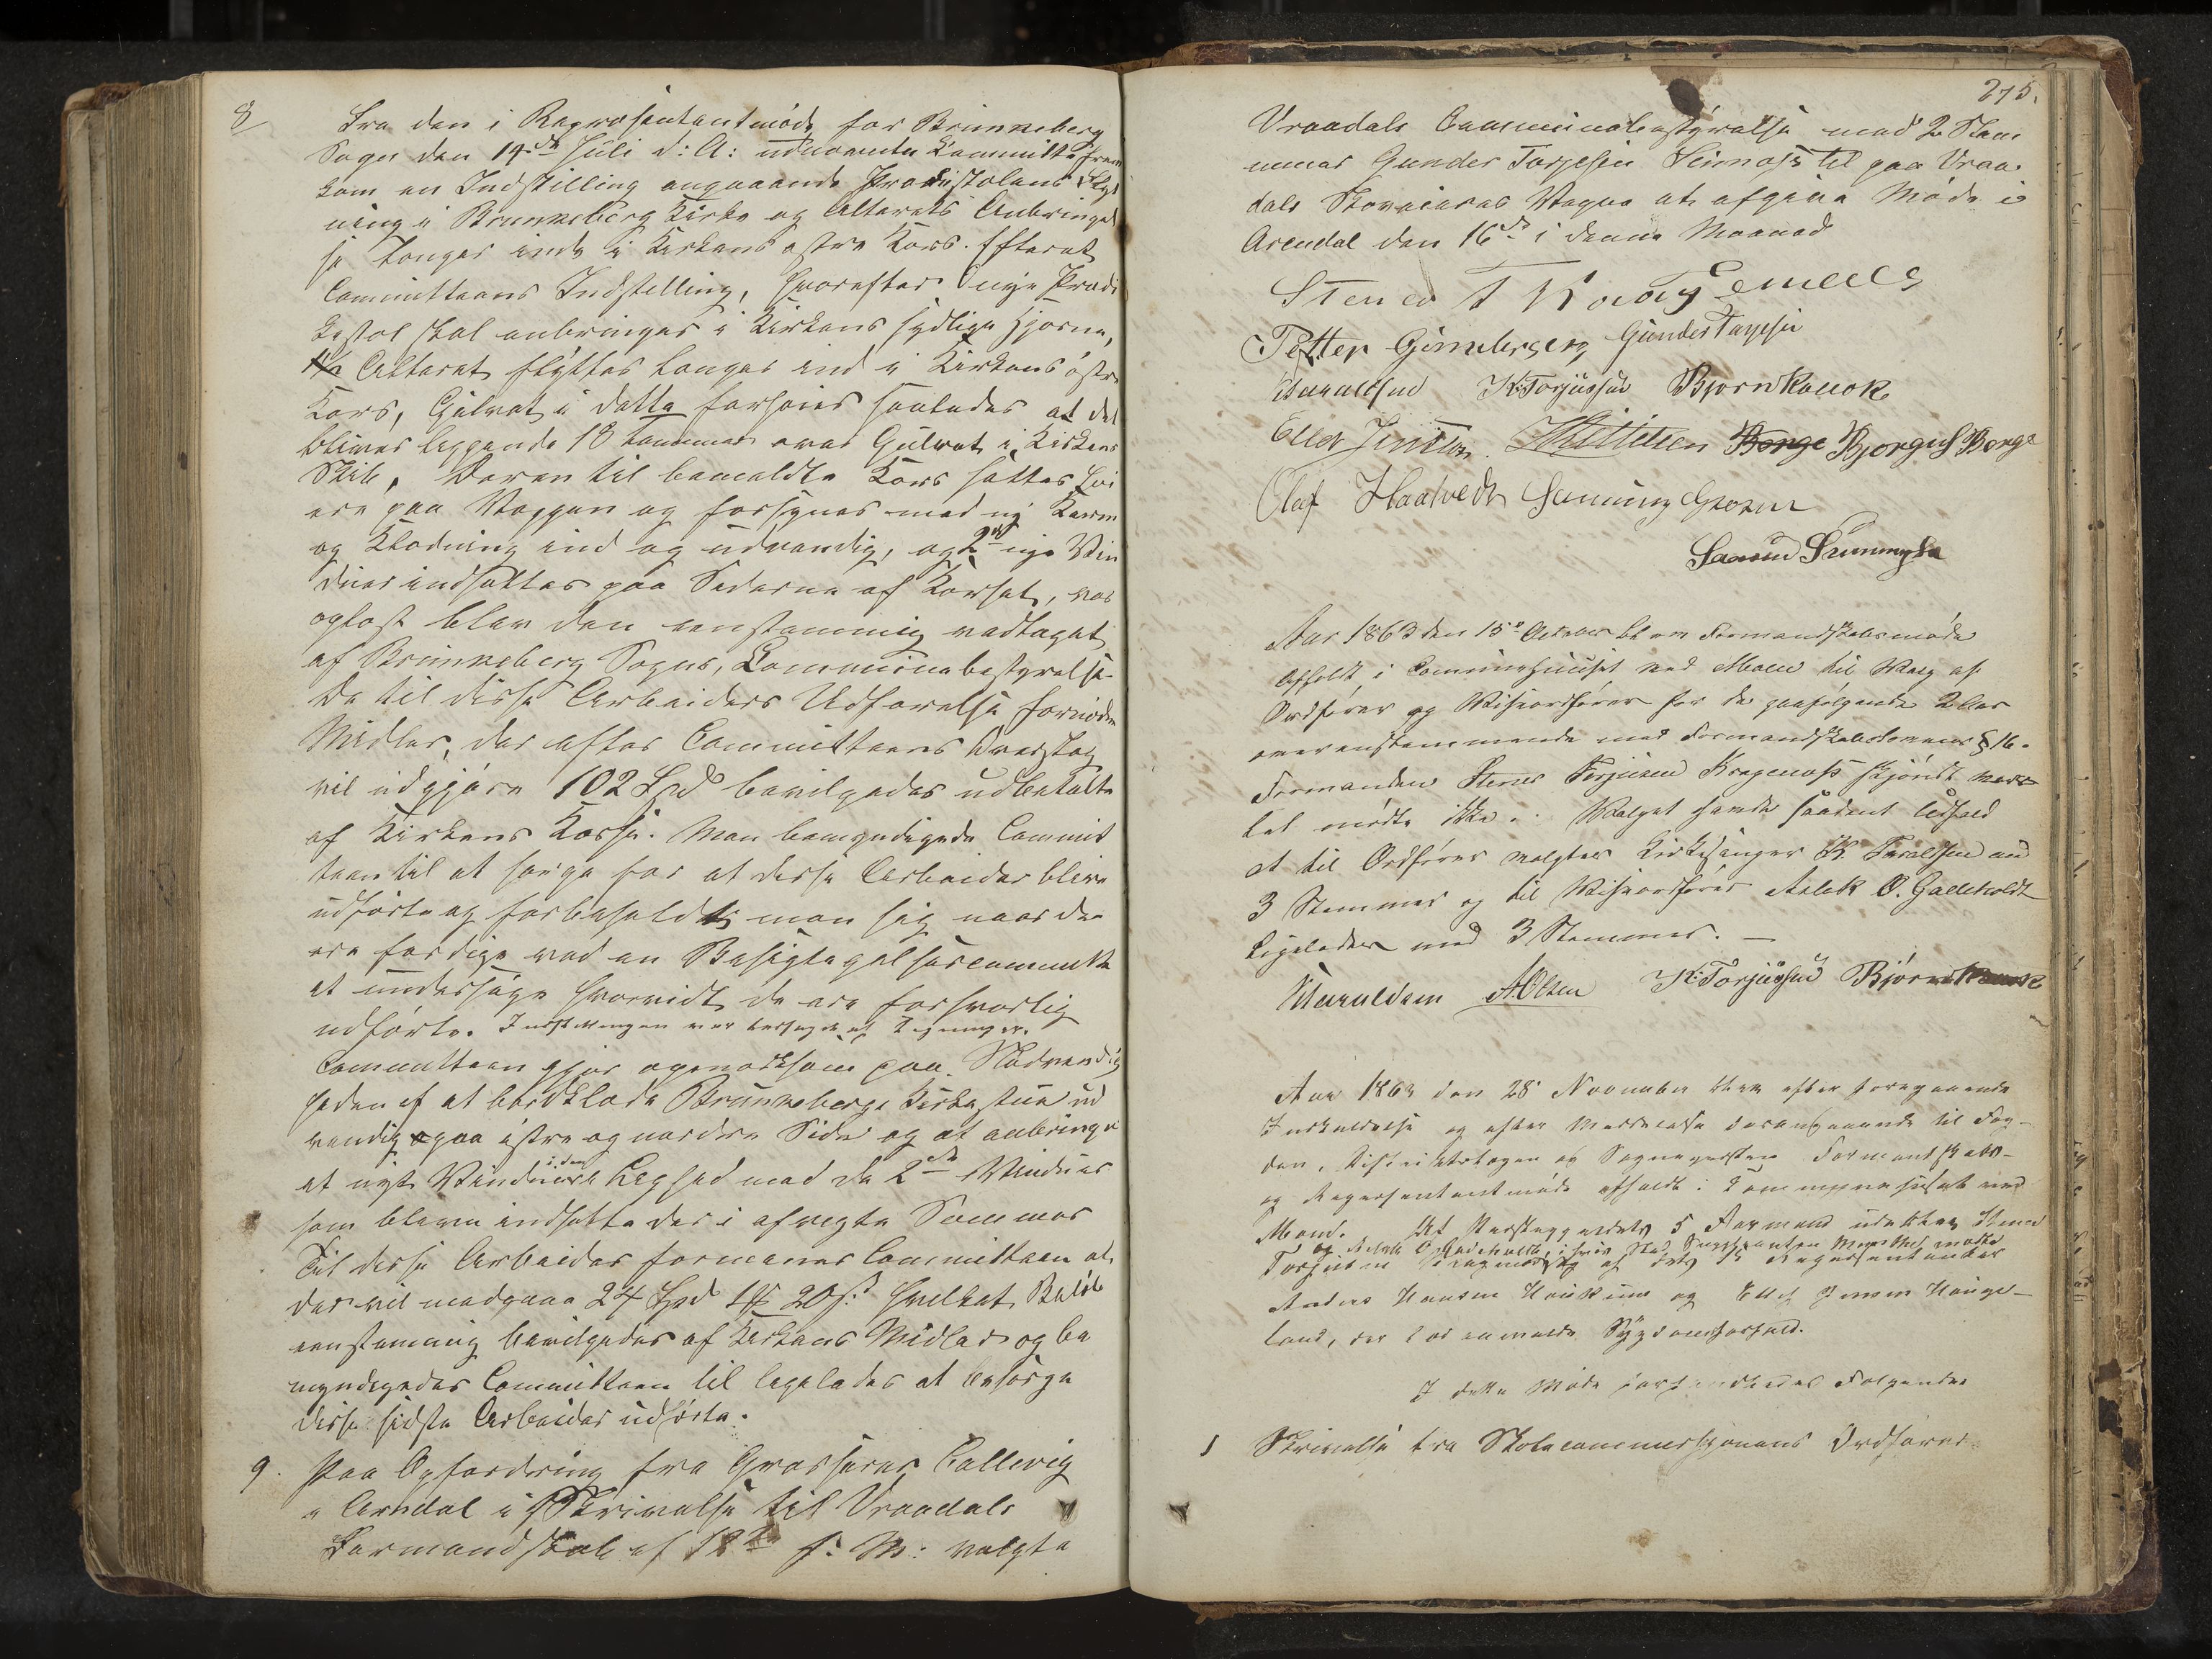 8
Fra den i Repræsentantmøde for Brunkeberg
Sogn den 14de Juli d: A: udnævnte Committe frem
kom en Indstilling angaaende Prædikstolens Flyt
ning i Brunkeberg Kirke og Alterets Anbringel
se længer inde i Kirkens østre Kors. Efter at
Committeens Indstilling, hvorefter nye Prædi
kestol skal anbringes i Kirkens sydlige Hjørne,
Alteret flyttes længer ind i Kirkens østre
Kors, Gulvet i dette forhøies saaledes at det
bliver liggende 18 Tommer over Gulvet i Kirkens
Skib, Døren til bemeldte Kors sættes høi
ere paa Væggen og forsynes med ny Karm
og Klædning ind og udvendig, og 2de nye Vin
duer indsættes paa Siderne af Korset, var
oplæst blev den eenstemmig vedtaget
af Brunkeberg Sogns, Communebestyrelse.
De til disse Arbeiders Udførelse fornødne
Midler, der efter Committeens Overslag
vil udgjøre 102 Spd bevilgedes udbetalte
af Kirkens Kasse. Man bemyndigede Commit
teen til at sørge for at disse Arbeider blive
udførte og forbeholdt man sig naar de
ere færdige ved en Besigtigelsescommitte
at undersøge hvorvidt de ere forsvarlig
udførte. Indstillingen var ledsaget af Tegninger.
Committeen gjør opmærksom paa Nødvendig
heden af at bordklæde Brunkeberg Kirkestue ud
vendig paa østre og nordre Side og at anbringe
et nyt Vindue i den Lighed med de 2de Vinduer
som bleve indsatte der i afvigte Sommer
Til disse Arbeider formener Committeen at
der vil medgaae 24 Spd 1 ort 20 s: hvilket Beløb
eenstemmig bevilgedes af Kirkens Midler og be
myndigedes Committeen til ligeledes at besørge
disse sidste Arbeider udførte.
9. Paa Opfordring fra Grosserer Callevig
i Arndal i Skrivelse til Vraadals
Formandskab af 12te f: M: valgte
275.
Vraadals Communebestyrelse med 2 Stem
mer Gunder Torjesen Sinnæs til paa Vraa
dals Skoveieres Vegne at afgive Møde i
Arendal den 16de i denne Maaned
Stener T Kragenæs
Petter Gimlerseng Gunder Tarjesen
KTaraldsen K. Torjussen Bjørn Kallok
Ellef Jensen. Kittilsen Borge Bjorguf Borge
Olaf Haatvedt Henning Groven
Saamund Sunnmyhr
Aar 1863 den 15de October blev Formandskabsmøde
afholdt i Communehuuset ved Moen til Valg af
Ordfører og Viseordfører for de paafølgende 2 Aar
overensstemmende med Formandskabslovens § 16.
Formanden Stener Torjusen Kragenæs skjøndt vars
let mødte ikke. Valget havde saadant Udfald
at til Ordfører valgtes Kirkesanger K. Taraldsen med
3 Stemmer og til Viseordfører Aslak O. Gadeholdt
Ligeledes med 3 Stemmer. –
KTaraldsen AOlsen K. Torjussen Bjørn Kallok
Aar 1863 den 28de November blev efter foregaaende
Indkaldelse og efter Meddelelse derangaaende til Fog-
den, Distriktslægen og Sognepresten Formandskabs-
og Repræsentantmøde afholdt i Communehuset ved
Moen. Af Præstegjeldets 5 Formænd udeblev Stener
og Aslak O. Gadeholdt, i hvis Sted Suppleanten mødte
Torjusen Kragenæs og af dets 15 Repræsentanter
Anders Hansen Haukum og Ellef Jensen Hauge-
land, der lod anmelde Sygdomsforfald.
I dette Møde forhandledes Følgende:
1 Skrivelse fra Skolecommissionens Ordfører